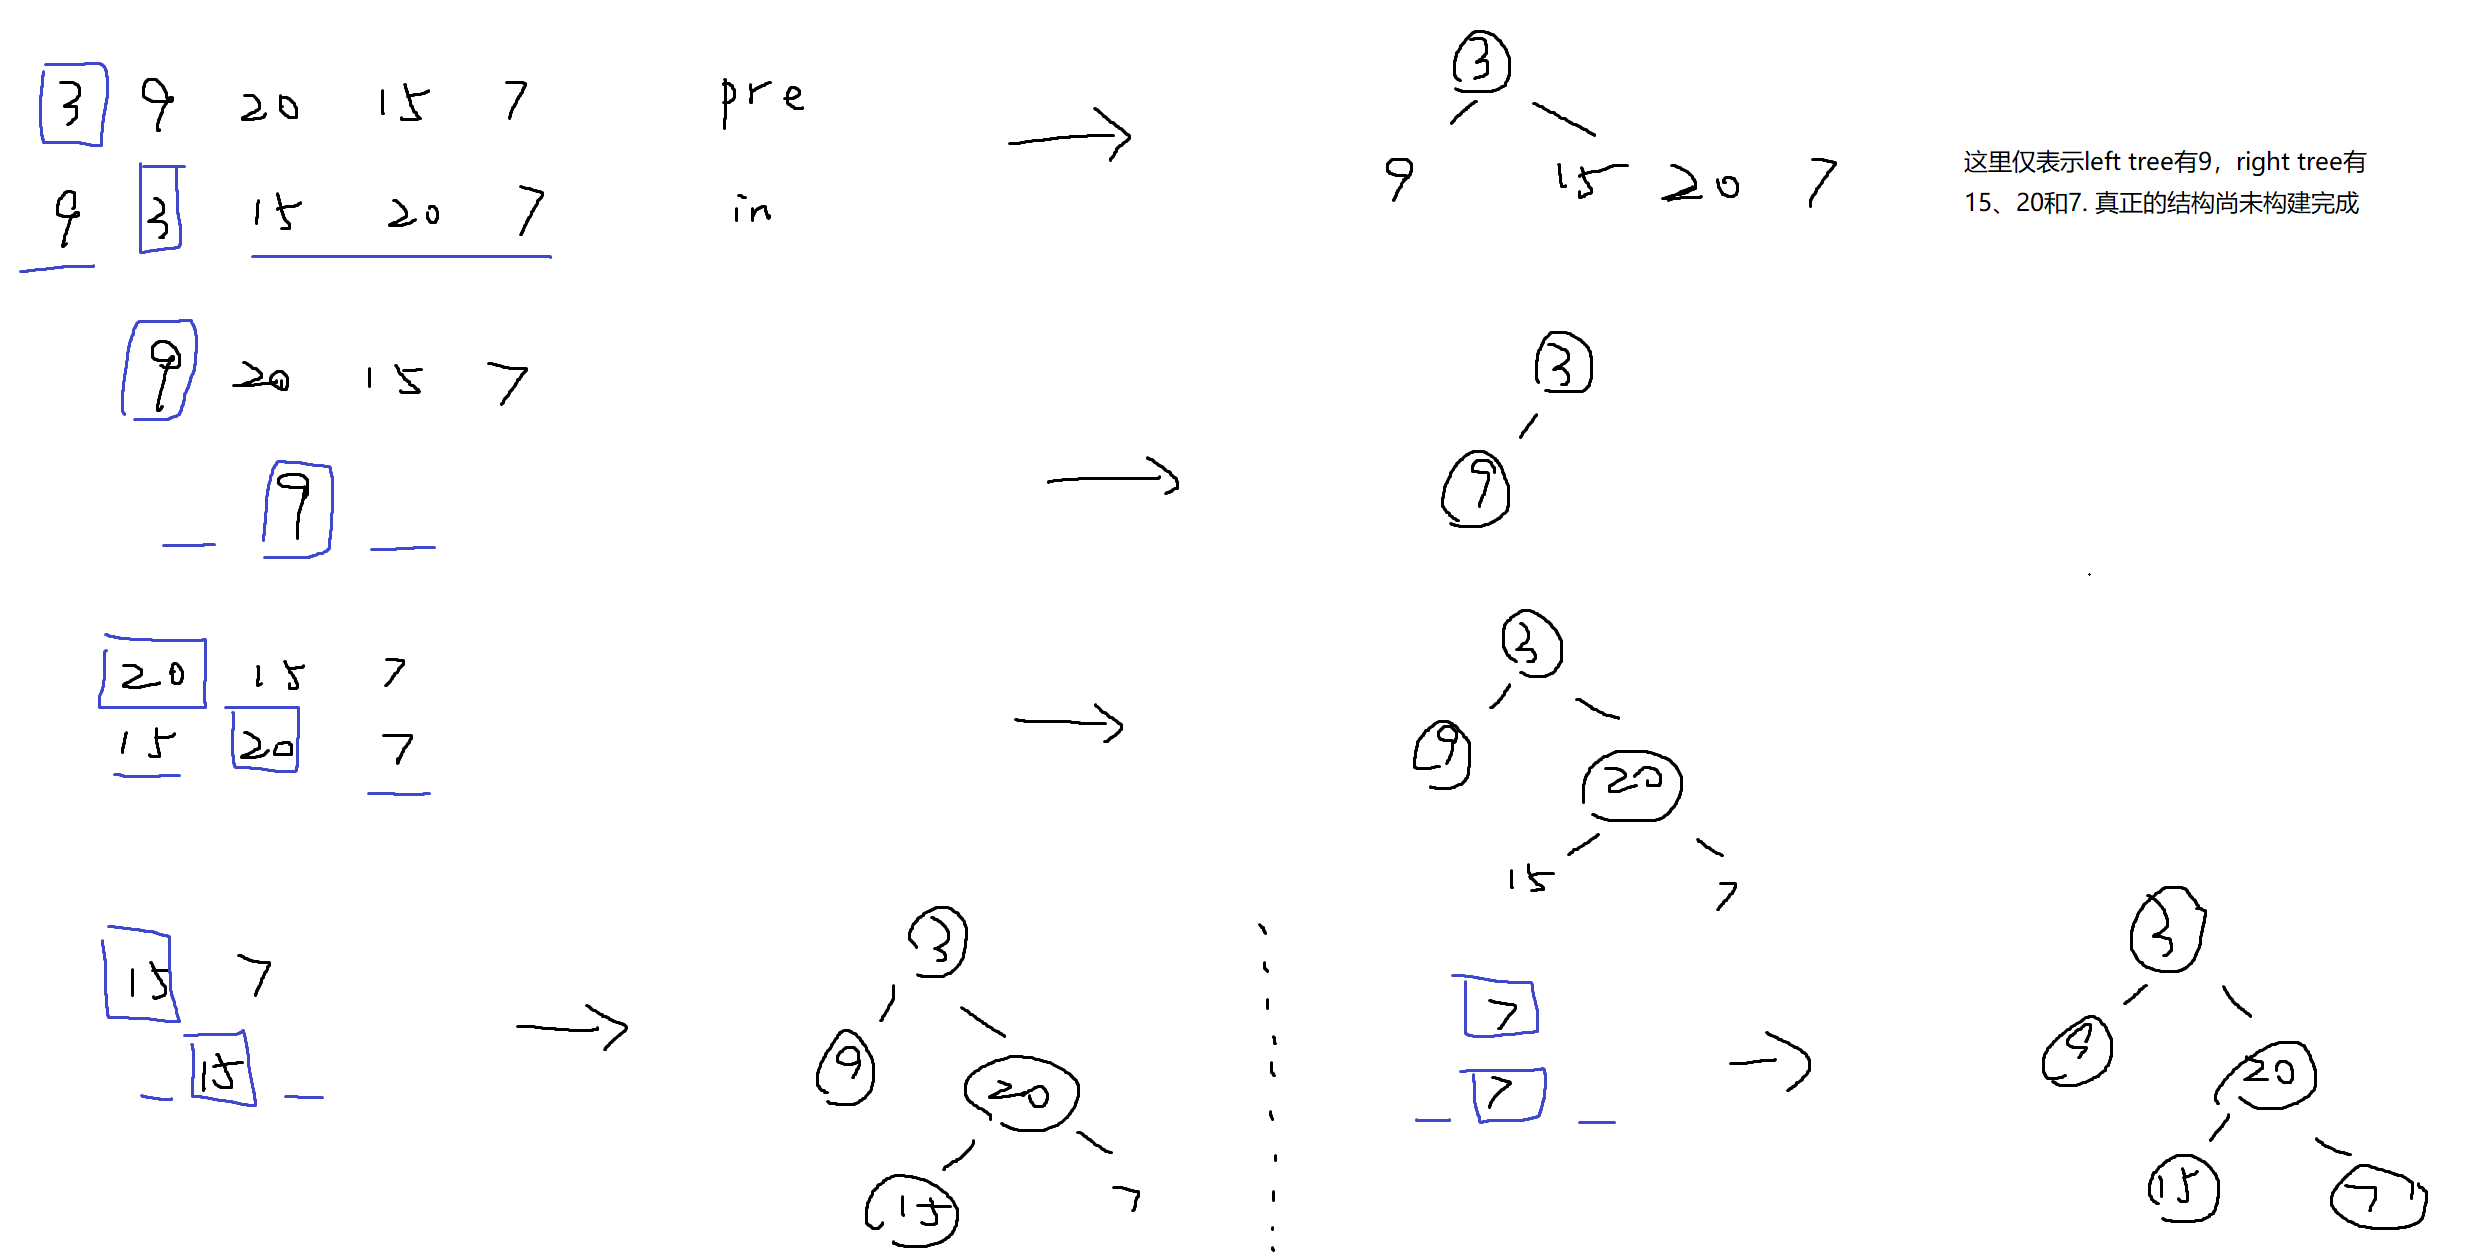 3 9 20 15 7 pre
9 3 15 20 7 in
3
9 15 20 7
这里仅表示left tree有9，right tree有
15、20和7. 真正的结构尚未构建完成
9 20 15 7
9
3
9
20 15 7
15 20 7
3
9
20
15 7
15 7
15
3
9
20
15 7
7
7
3
9
20
15 7